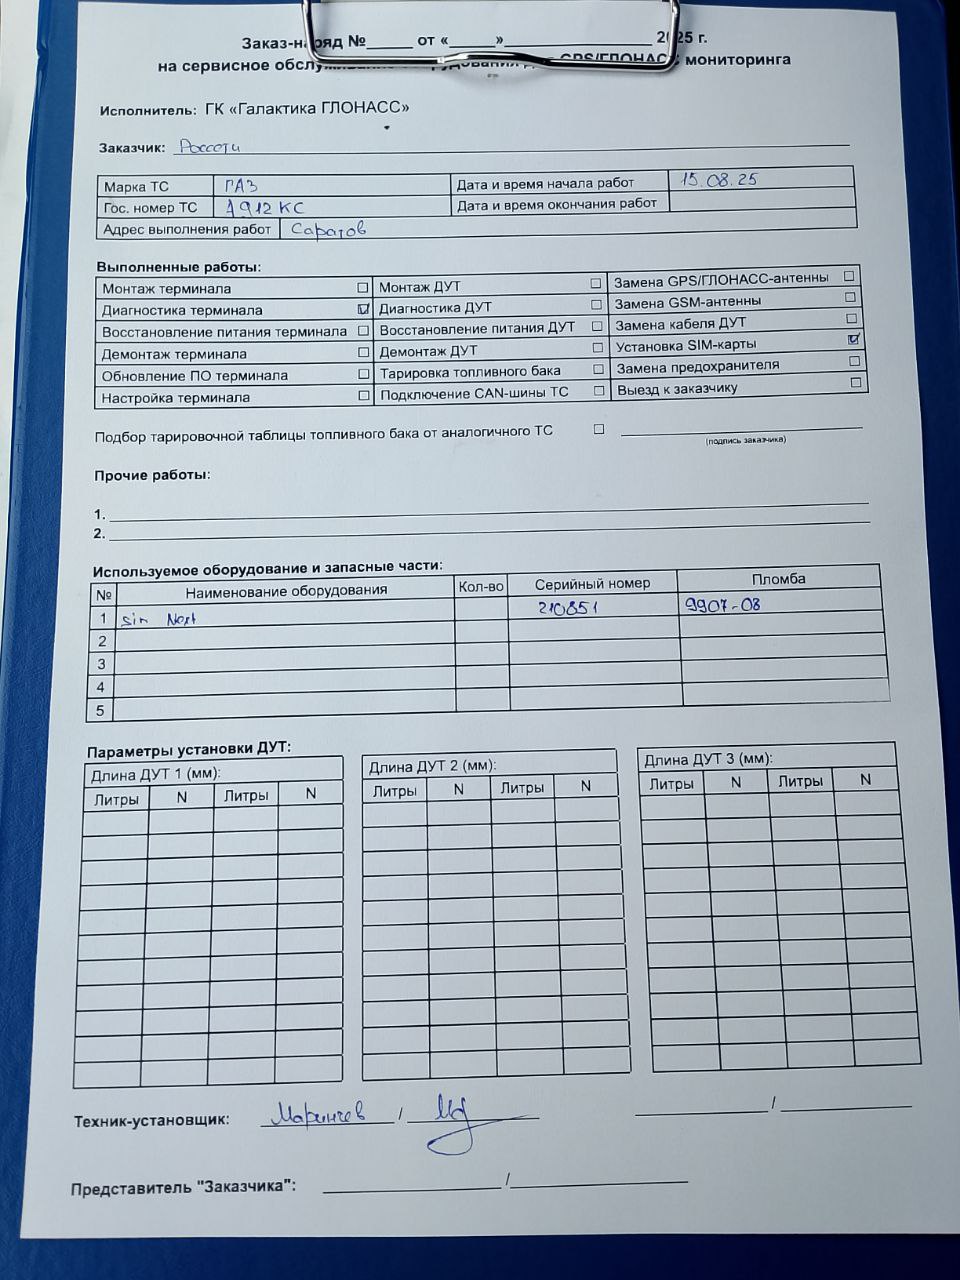 Заказ-наряд №_____ от «_____»________________ 2025 г.
на сервисное обслуживание оборудования для GPS/ГЛОНАСС мониторинга
Исполнитель: ГК «Галактика ГЛОНАСС»
Заказчик: Россети
Марка ТС ГАЗ Дата и время начала работ 15.08.25
Гос. номер ТС А912КС Дата и время окончания работ
Адрес выполнения работ Саратов
Выполненные работы:
Монтаж терминала ☐ Монтаж ДУТ ☐ Замена GPS/ГЛОНАСС-антенны ☐
Диагностика терминала ☑ Диагностика ДУТ ☐ Замена GSM-антенны ☐
Восстановление питания терминала ☐ Восстановление питания ДУТ ☐ Замена кабеля ДУТ ☐
Демонтаж терминала ☐ Демонтаж ДУТ ☐ Установка SIM-карты ☑
Обновление ПО терминала ☐ Тарировка топливного бака ☐ Замена предохранителя ☐
Настройка терминала ☐ Подключение CAN-шины ТС ☐ Выезд к заказчику ☐
Подбор тарировочной таблицы топливного бака от аналогичного ТС ☐
(подпись заказчика)
Прочие работы:
1.
2.
Используемое оборудование и запасные части:
№ Наименование оборудования Кол-во Серийный номер Пломба
1 sim Next 210851 9907-08
2
3
4
5
Параметры установки ДУТ:
Длина ДУТ 1 (мм): Длина ДУТ 2 (мм): Длина ДУТ 3 (мм):
Литры N Литры N Литры N Литры N Литры N Литры N
Техник-установщик: Маричев /
Представитель "Заказчика": /